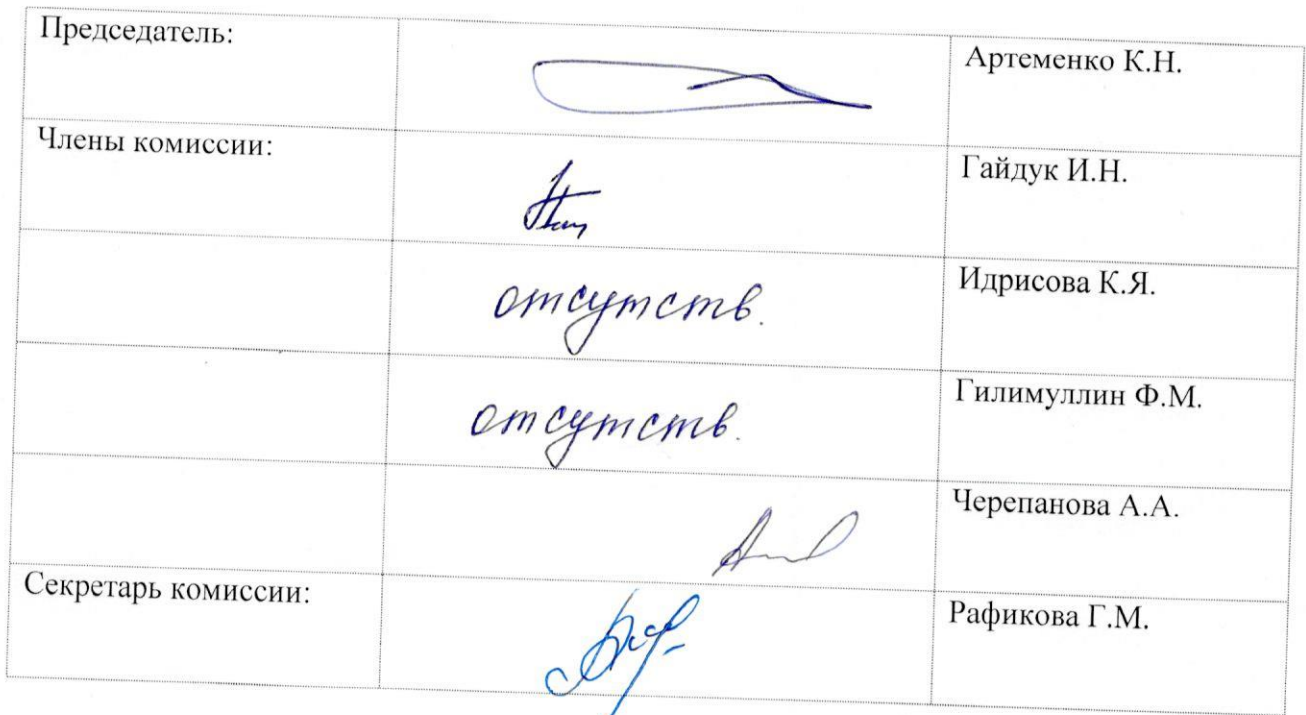 Председатель: Артеменко К.Н.
Члены комиссии: Гайдук И.Н.
отсутств. Идрисова К.Я.
отсутств. Гилимуллин Ф.М.
Черепанова А.А.
Секретарь комиссии: Рафикова Г.М.